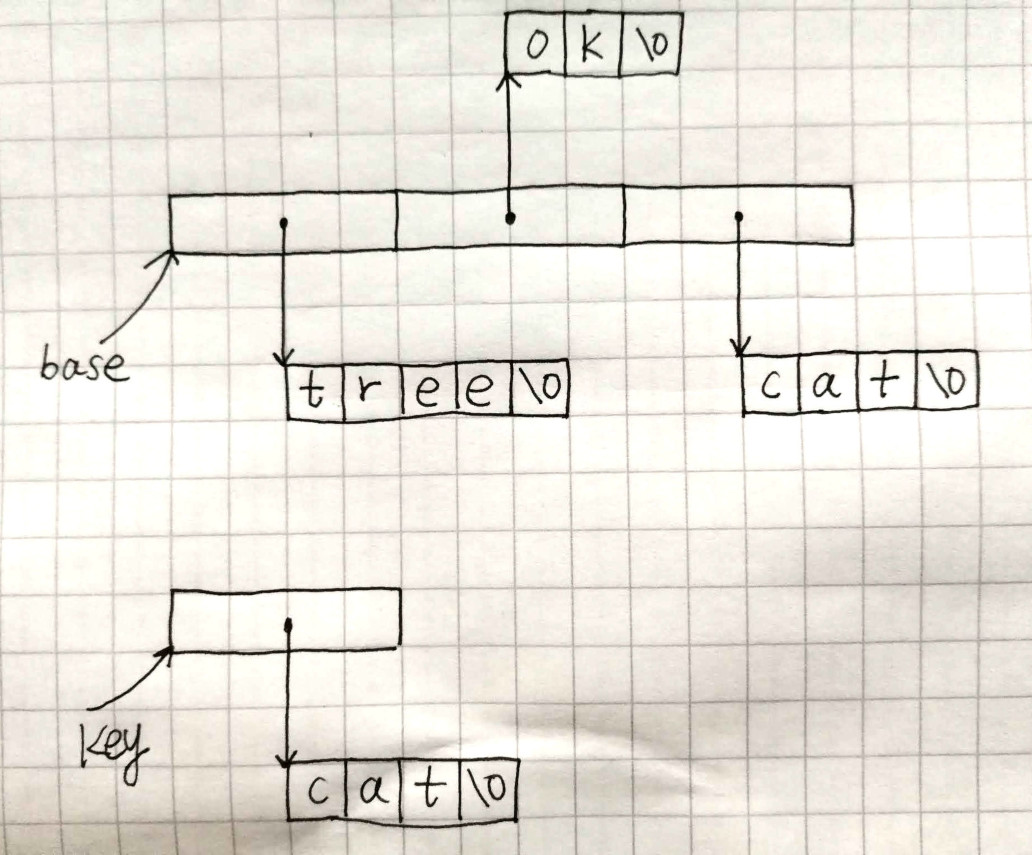 o k \0
base
t r e e \0
c a t \0
key
c a t \0